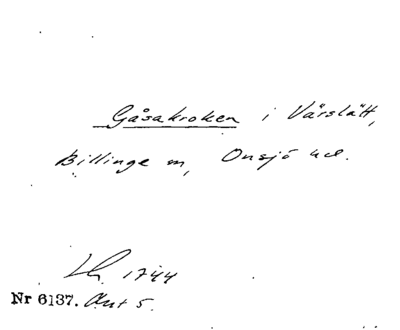 Gåsakroken i Vårslätt,
Billinge
m, Onsjö hd.
Lh. 1744
Nr 6137. Akt 5.